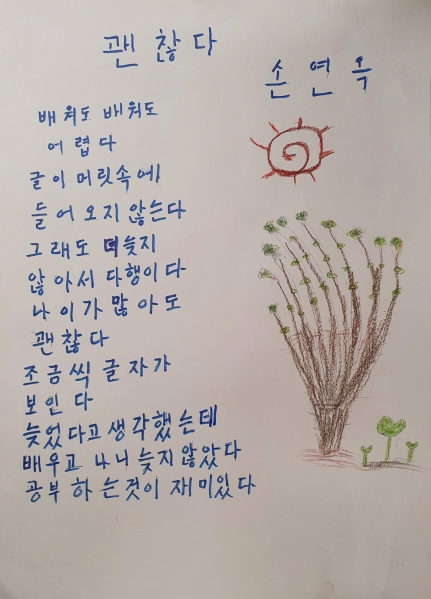 괜찮다
손연옥
배워도 배워도
어렵다
글이 머릿속에
들어오지 않는다
그래도 더늦지
않아서 다행이다
나이가 많아도
괜찮다
조금씩 글자가
보인다
늦었다고 생각했는데
배우고 나니 늦지않았다
공부하는것이 재미있다